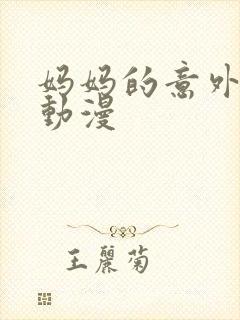 妈妈的意外
動漫
王麗菊